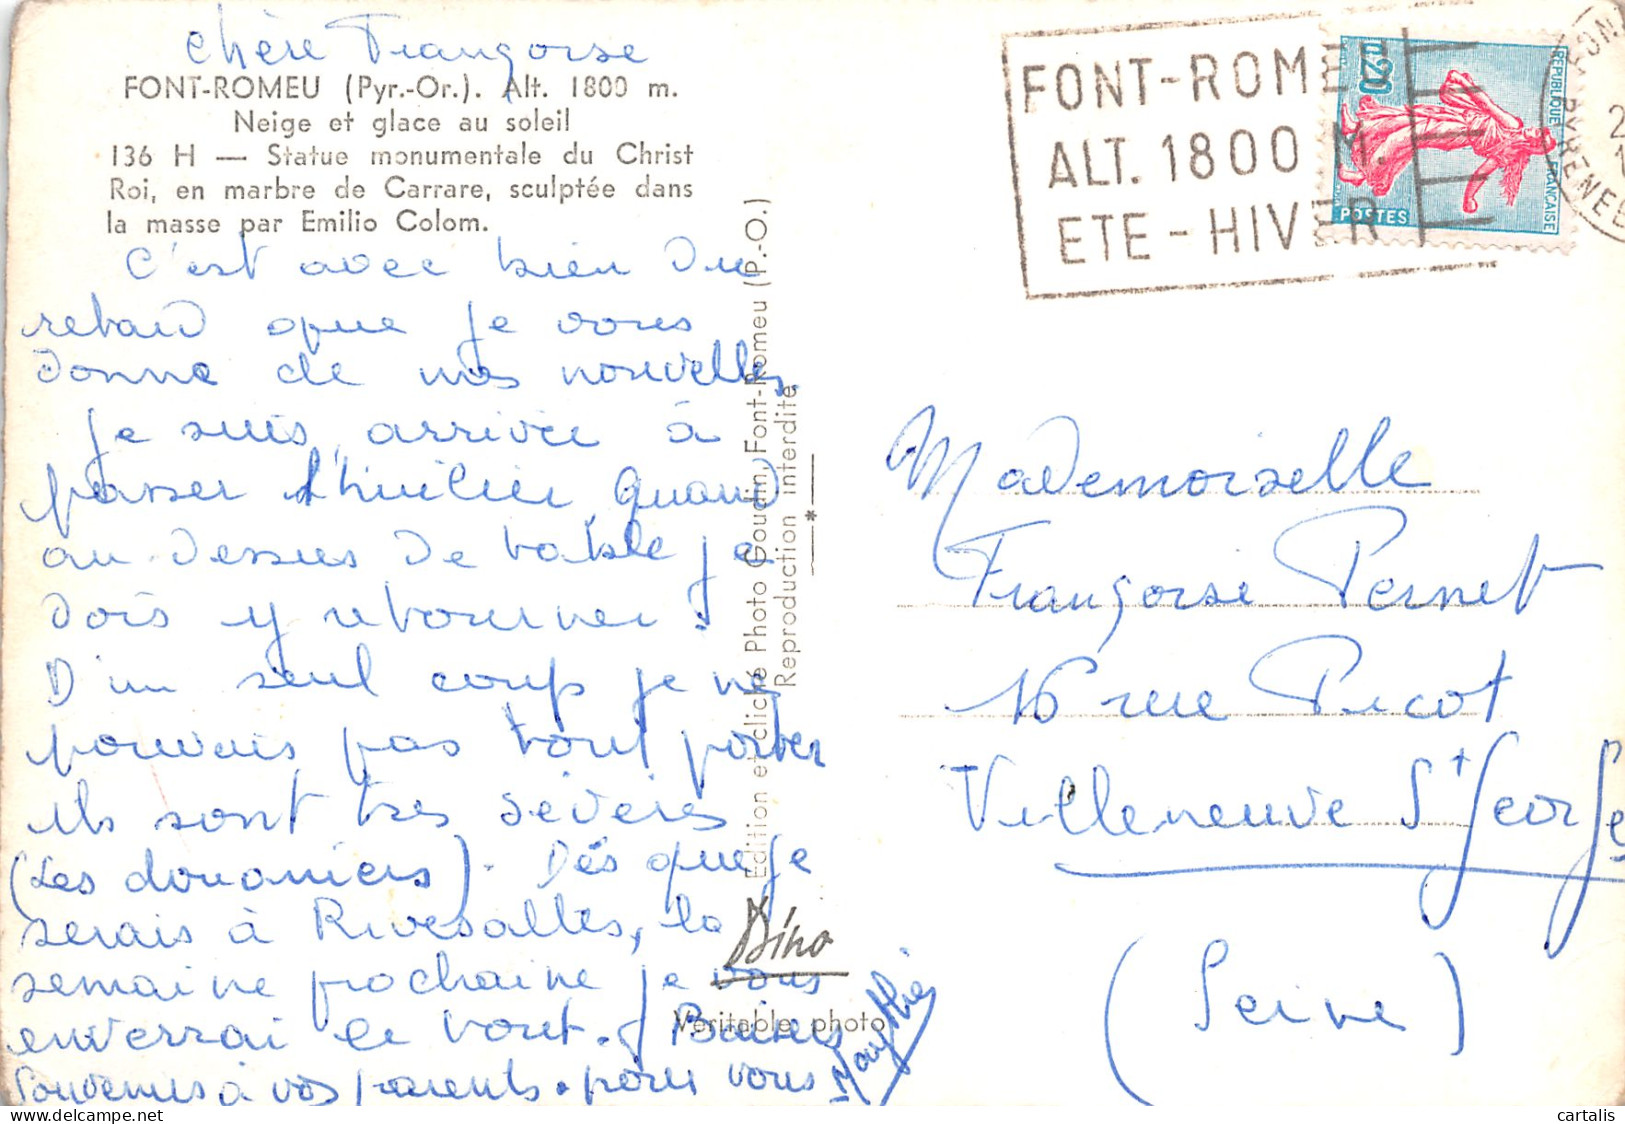 Chère Françoise
FONT-ROMEU (Pyr.-Or.). Alt. 1800 m.
Neige et glace au soleil
136 H — Statue monumentale du Christ
Roi, en marbre de Carrare, sculptée dans
la masse par Emilio Colom.
C'est avec bien du
retard que je vous
donne de mes nouvelles,
je suis arrivée à
passer l'huilier, quand
au dessus de table je
dois y retourner.
D'un seul coup je ne
pouvais pas tout porter
ils sont très sévères
(Les douaniers). Dès que je
serais à Rivesaltes, la
semaine prochaine je vous
enverrai le tout.
Souvenirs à vos parents. pour vous
Baisers
Edition et cliché Photo Goudin, Font-Romeu (P.-O.)
Reproduction interdite
*
Dino
Véritable photo
FONT-ROMEU
ALT. 1800 M.
ETE - HIVER
0,20
REPUBLIQUE FRANÇAISE
POSTES
FON
PYRENEE
Mademoiselle
Françoise Pernet
16 rue Picot
Villeneuve St Georges
(Seine)
cartalis